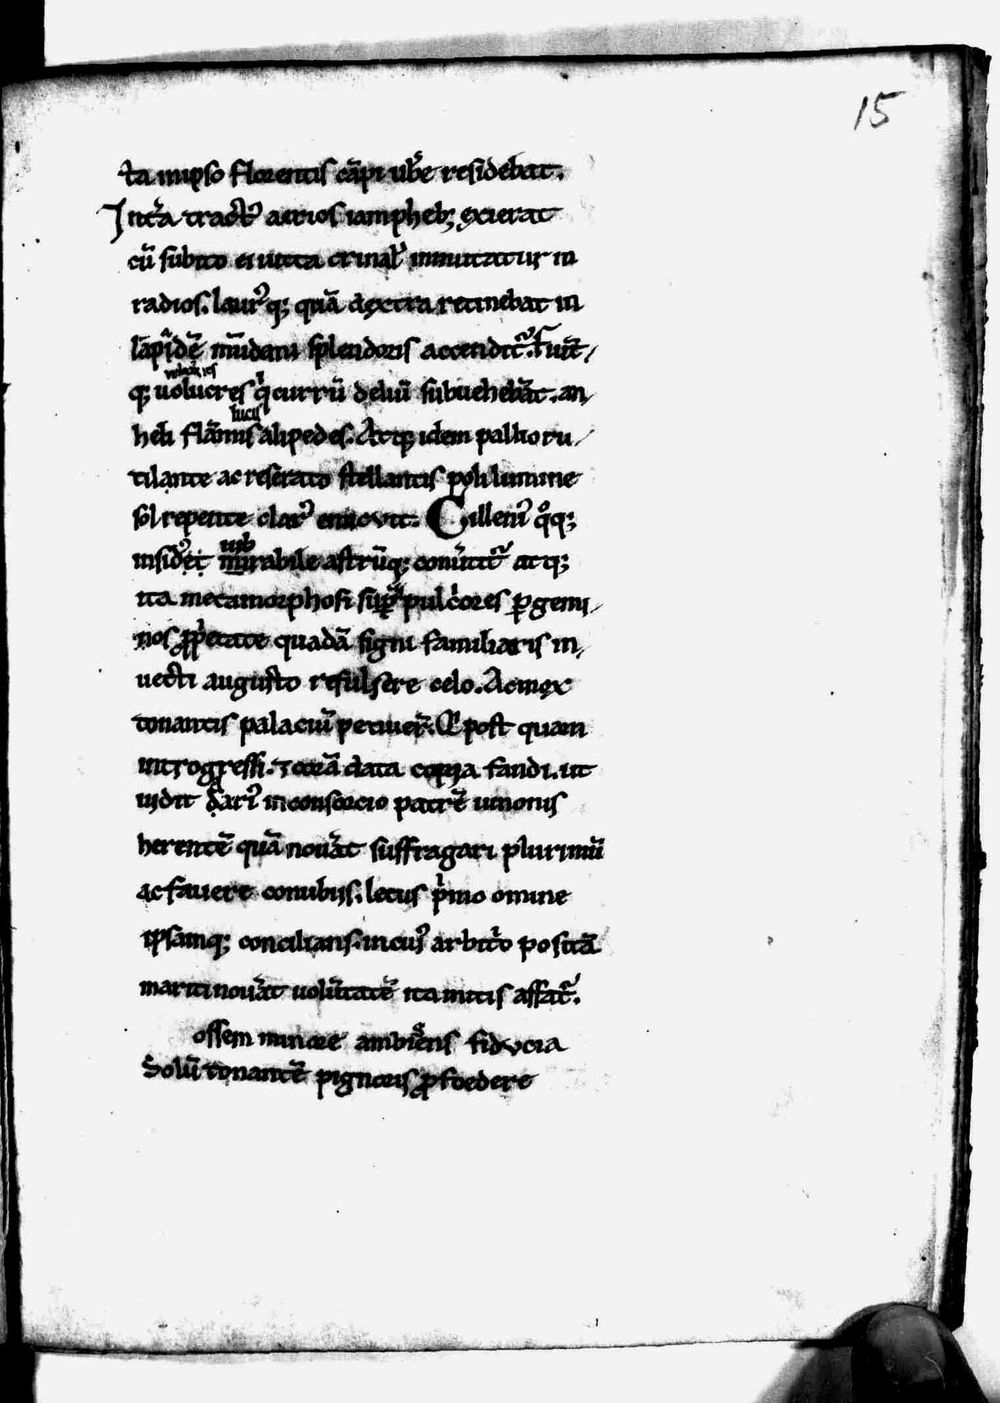 15
ta inipso florentis cāpi ub̄e residebat.
Int̄a tract᷒ aerios iam pheb; exierat
cū subito ei uitta crinal᷒ inmutatur in
radios. laur᷒q; quā dextra retinebat in
lāpidē mūdani splendoris accendit᷒. fuer̄t/
uelocitres
q; uolucres q̄ currū deliū subuehebāt. an/
lucis
heli flāmis alipedes. Atq; idem pallio ru/
tilante ac reserato stellantis poli limine
sol repente clar᷒ emicuit. Cilleni᷒ q̊q;
uib
insid᷒et mirabile astrūq; conūtit᷒ atq;
ita metamorphosi sup̄ pulc̄ores p̱ gemi/
nos ꝓp̄etate quadā signi familiaris in/
uecti augusto refulsere celo. Ac mox
tonantis palaciū petiuer̄. Q̄ post quam
introgressi. ⁊ corā data copia fandi. ut
uidit clari᷒ in consorcio patrē unionis
herentē quā nouāt suffragari plurimū
ac fauere conubiis. letus p̄mo omine
ipsamq; concilians. in cui᷒ arbit̄o positā
mariti nouāt uolūtatē ita mitis affat᷒.
ossem minore ambiēns fiducia
Solū tonantē pignoris ꝓ foedere